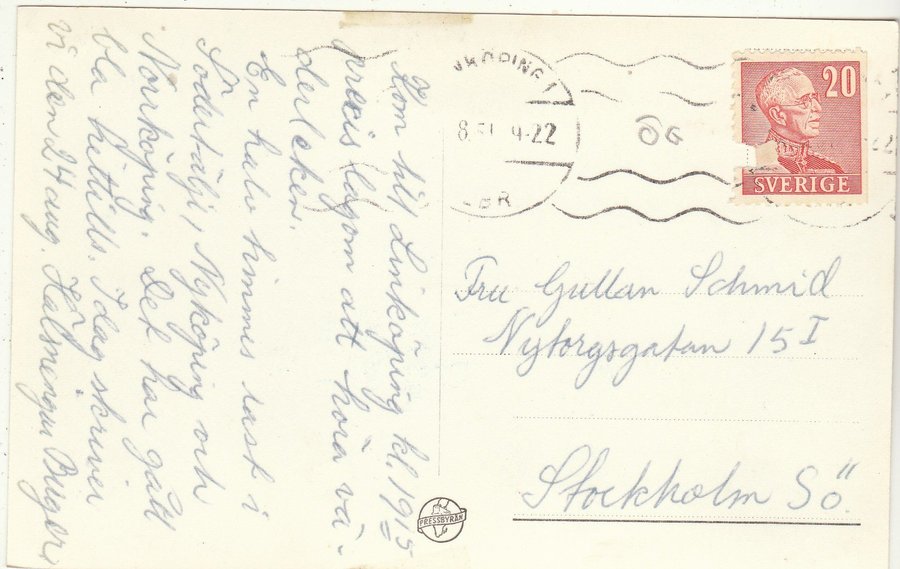 Kom till Linköping kl. 19 15
precis lagom att höra vä-
derleken.
En halv timmis rast i
Södertälje, Nyköping och
Norrköping. Det har gått
bra hittills. Idag skriver
vi den 24 aug. Hälsningar Birger
NKÖPING 1
8.51 9-22
LBR
ÖG
20
SVERIGE
Fru Gullan Schmid
Nytorgsgatan 15 I
Stockholm Sö
PRESSBYRÅN